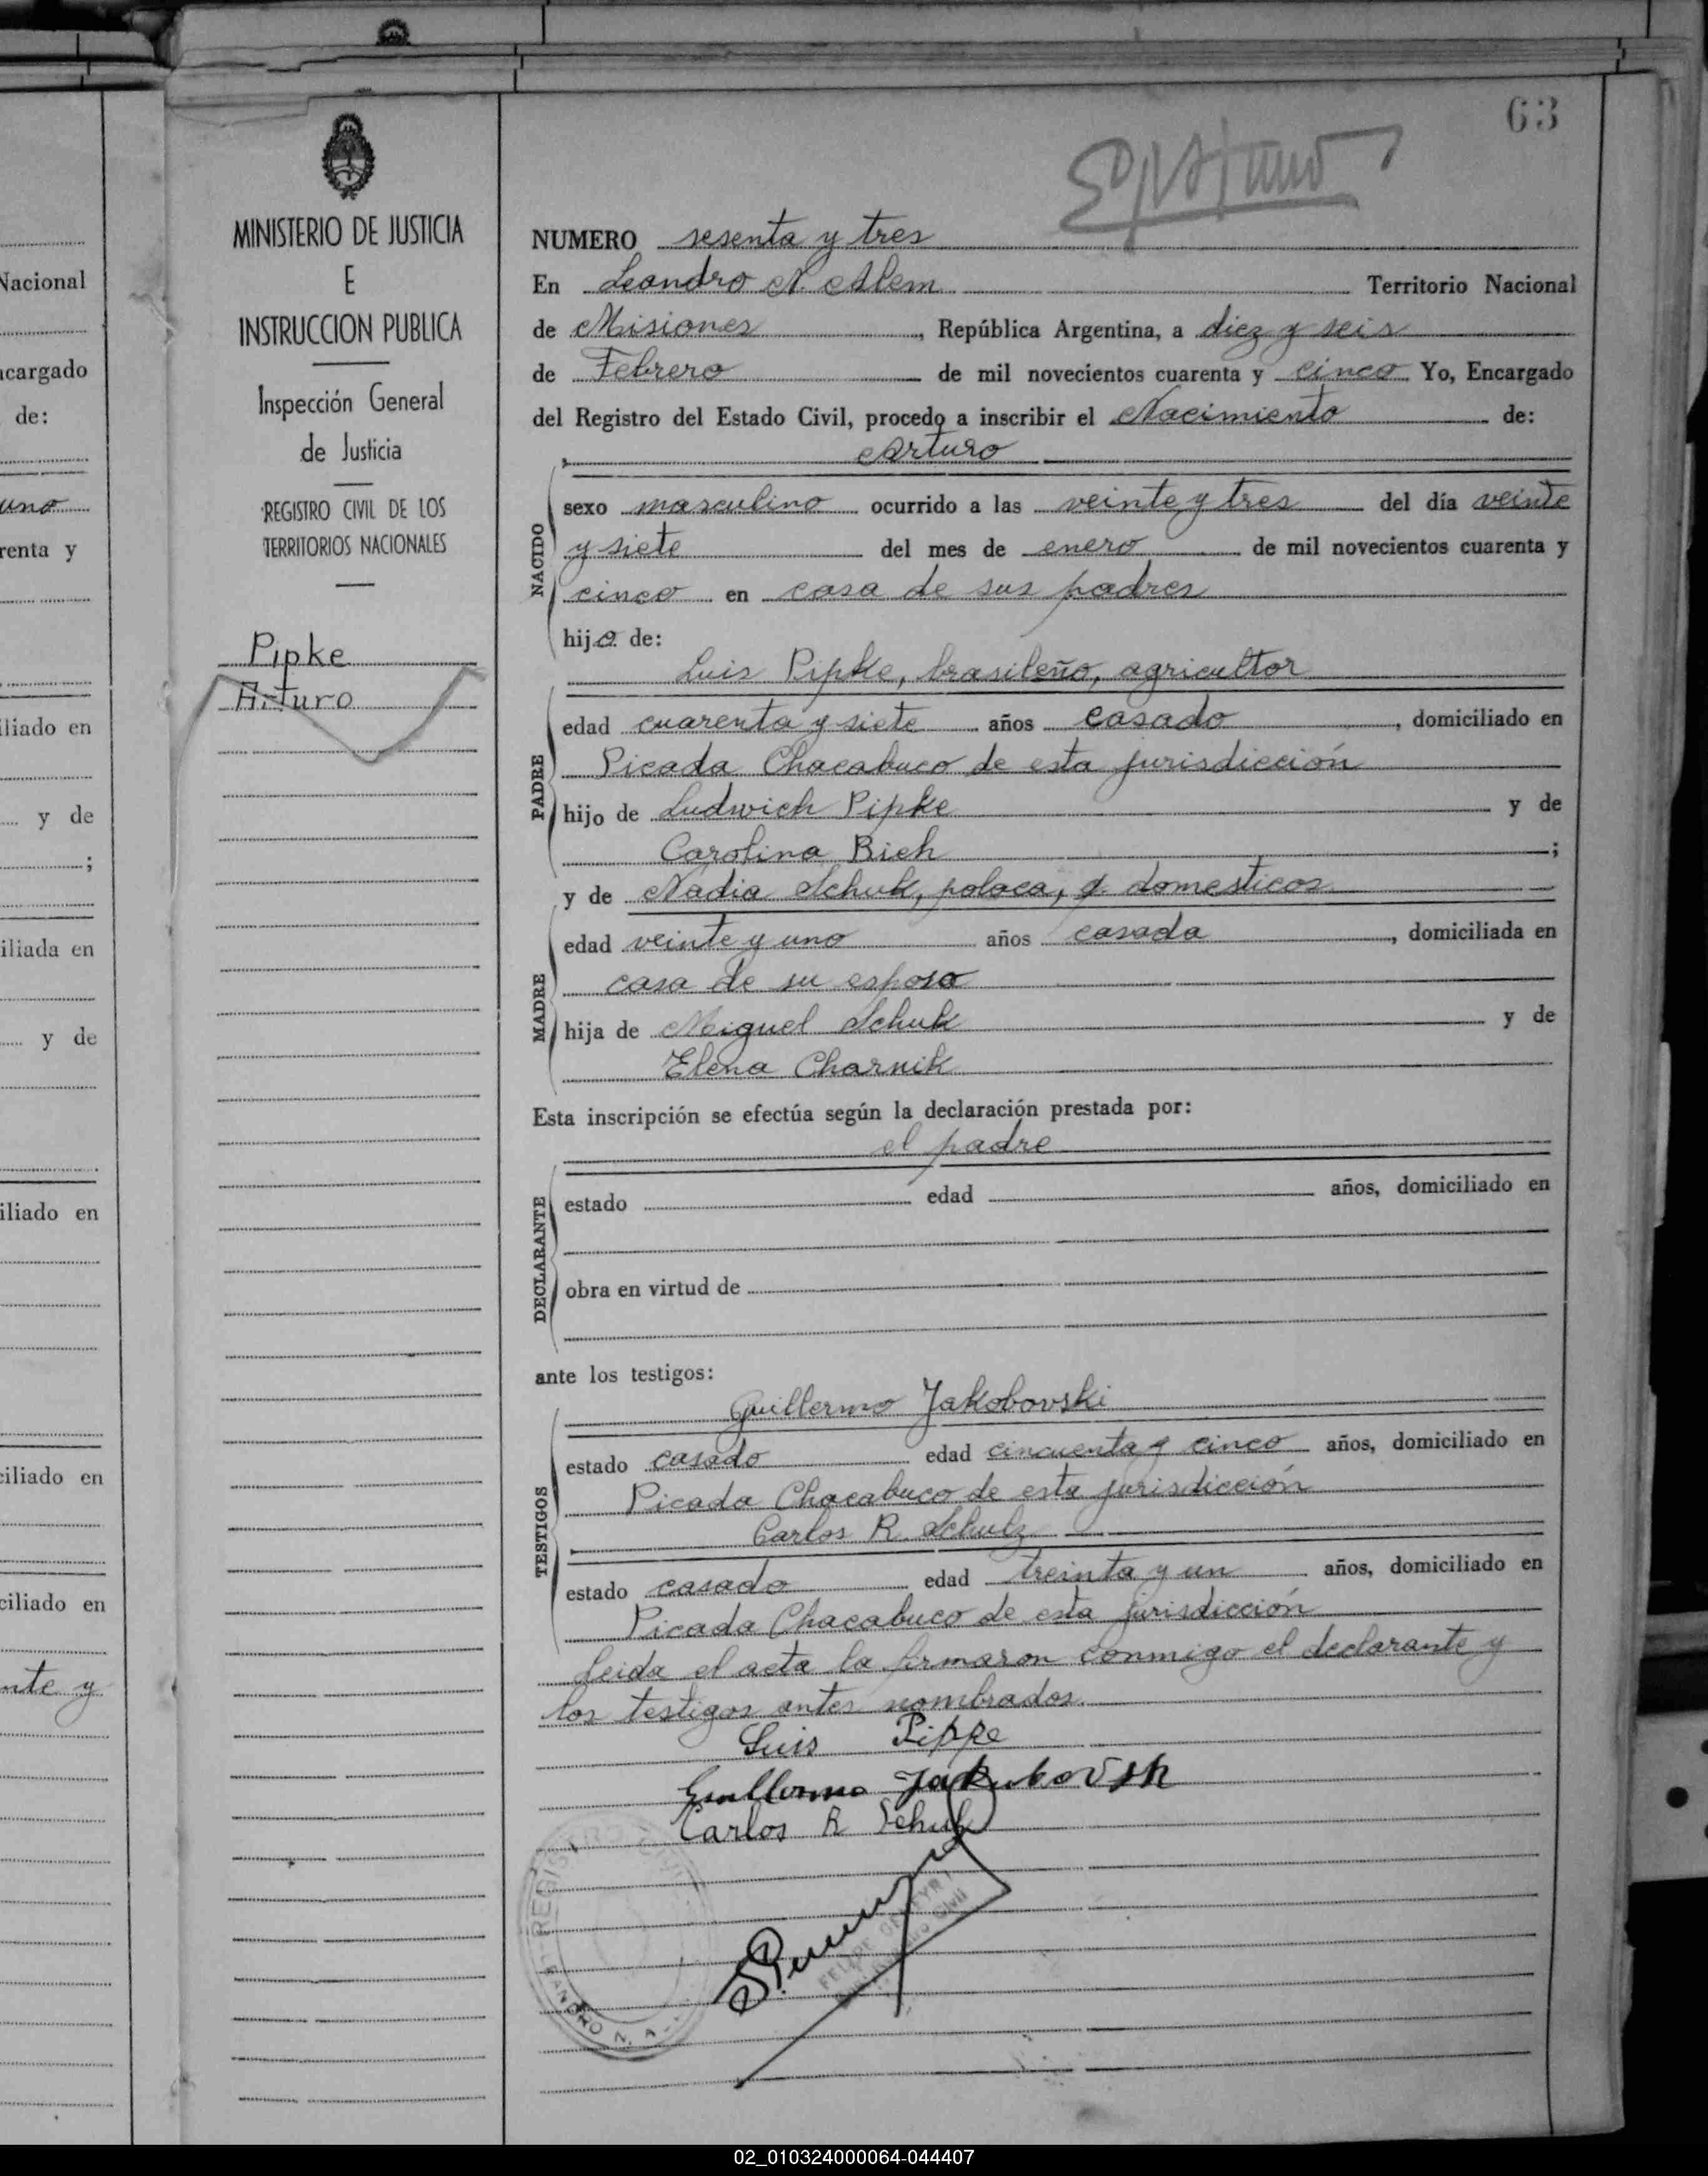 63
MINISTERIO DE JUSTICIA
E
INSTRUCCION PUBLICA
Inspección General
de Justicia
REGISTRO CIVIL DE LOS
TERRITORIOS NACIONALES
Pipke
Arturo
NUMERO sesenta y tres
En Leandro N. Alem Territorio Nacional
de Misiones, República Argentina, a diez y seis
de Febrero de mil novecientos cuarenta y cinco Yo, Encargado
del Registro del Estado Civil, procedo a inscribir el Nacimiento de:
Arturo
NACIDO
sexo masculino ocurrido a las veinte y tres del día veinte
y siete del mes de enero de mil novecientos cuarenta y
cinco en casa de sus padres
hijo de:
Luis Pipke, brasileño, agricultor
PADRE
edad cuarenta y siete años casado, domiciliado en
Picada Chacabuco de esta jurisdicción
hijo de Ludwich Pipke y de
Carolina Rich;
y de Nadia Schuk, polaca, q. domesticos
MADRE
edad veinte y uno años casada, domiciliada en
casa de su esposo
hija de Miguel Schuk y de
Elena Charnik
Esta inscripción se efectúa según la declaración prestada por:
el padre
DECLARANTE
estado edad años, domiciliado en
obra en virtud de
ante los testigos:
Guillermo Jakobovski
TESTIGOS
estado casado edad cincuenta y cinco años, domiciliado en
Picada Chacabuco de esta jurisdicción
Carlos R. Schulz
estado casado edad treinta y un años, domiciliado en
Picada Chacabuco de esta jurisdicción
Leida el acta la firmaron conmigo el declarante y
los testigos antes nombrados.
Luis Pippe
Guillermo Jakubovsk
Carlos R Schulz
REGISTRO
LEANDRO N. A
FELIPE
Civil
Nacional
ncargado
de:
uno
renta y
iliado en
y de
;
iliada en
y de
iliado en
ciliado en
ciliado en
nte y
02_010324000064-044407